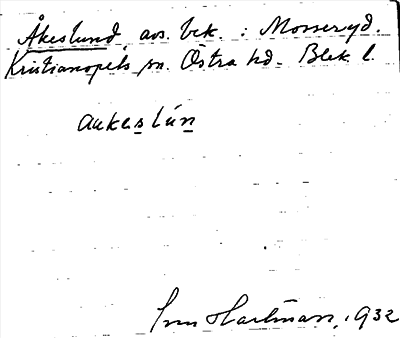 Åkeslund, avs. bek. : Mosseryd.
Kristianopels sn. Östra hd. Blek. l.
aukeslún
Hartman, 1932